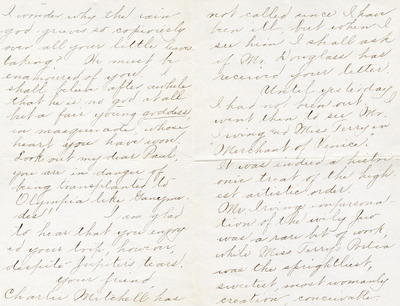 I wonder why the rain
god grieves so copiously
over all your little leave
taking? He must be
enamoured of you. I
shall blush after awhile
that he is no god at all
but a fair young goddess
in masquerade, whose
heart you have won.
Look out my dear Paul,
you are in danger of
being transplanted to
Olympia like Ganyme-
des! I am glad
to hear that you enjoy-
ed your trip, however,
despite Jupiter's tears!
Your friend
Charlie Mitchell has
not called since I have
been ill but when I
see him I shall ask
if Mr. Douglass has
received your letter.
Until yesterday
I had not been out. I
went then to see Mr.
Irving and Miss Terry in
Merchant of Venice.
It was indeed a histri-
onic treat of the high-
est artistic order.
Mr. Irving's impersona-
tion of the wily Jew
was a rare bit of work,
while Miss Terry's Portia
was the sprightliest,
sweetest, most womanly
creation conceivable.